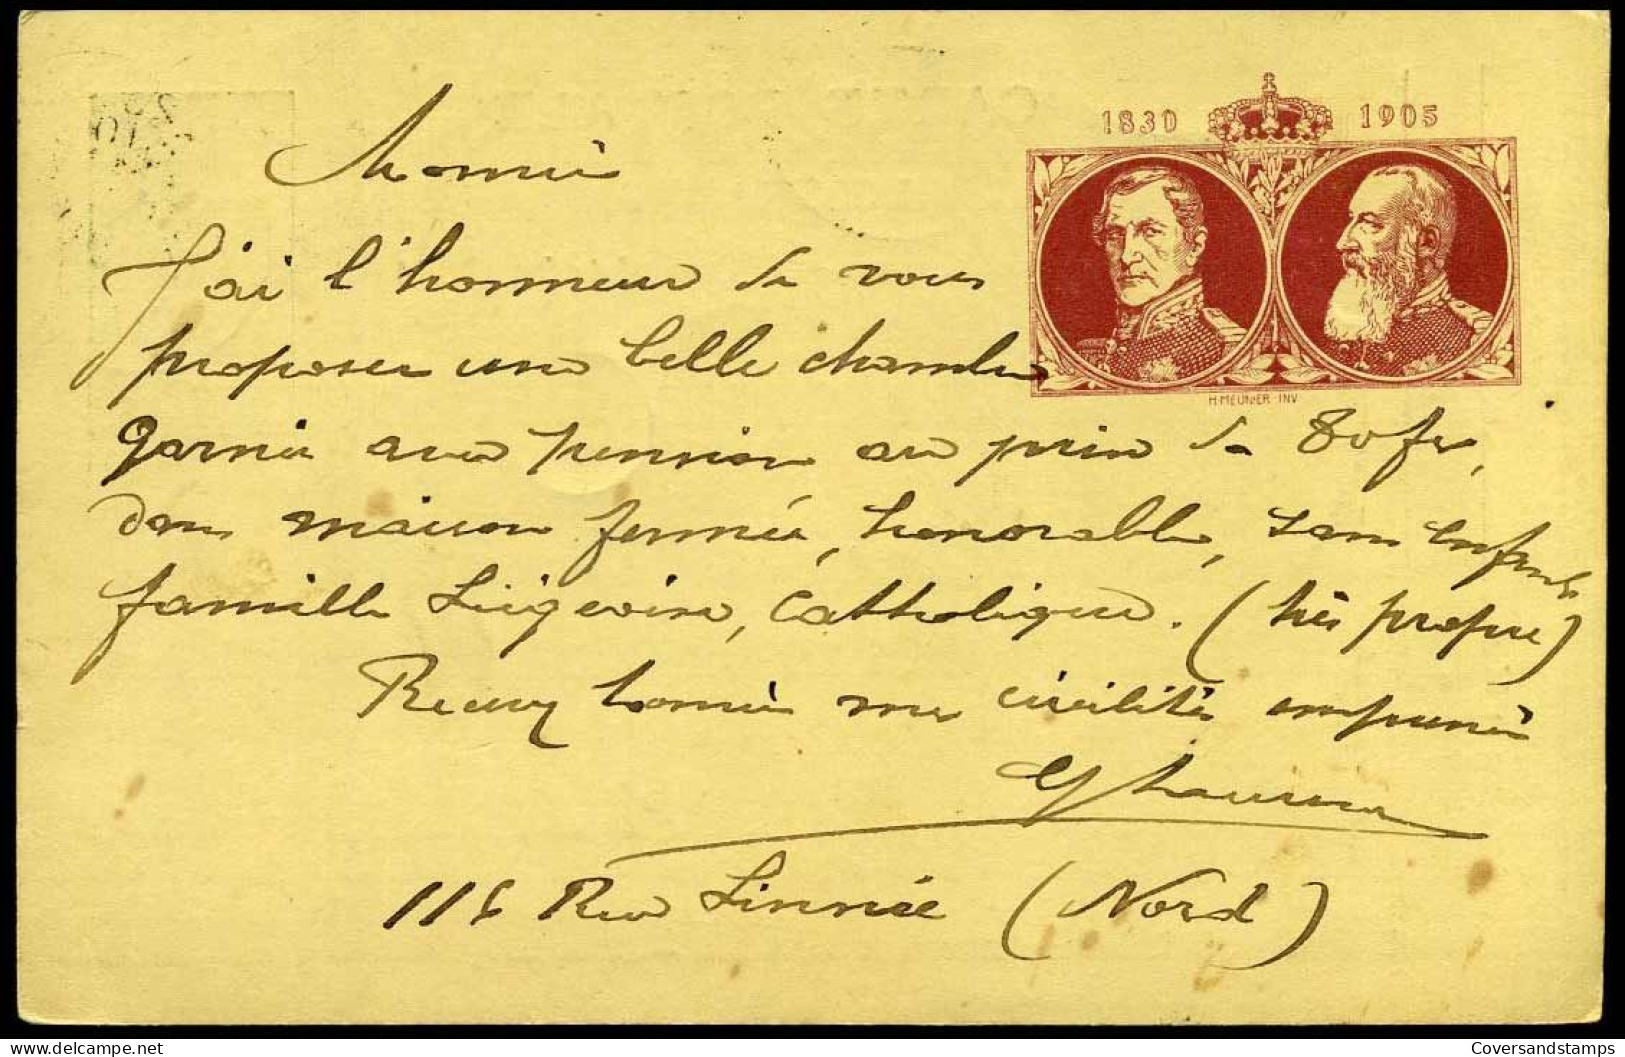 Monsieur
1830 1905
J'ai l'honneur de vous
proposer une belle chambre
H·MEUNIER·INV
garnie avec pension au prix de 80 frs,
dans maison fermée, honorable, sans enfants
famille Liégeoise, Catholique. (très propre)
Recevez Monsieur mes civilités empressées
Rue Linnée (Nord)
Coversandstamps